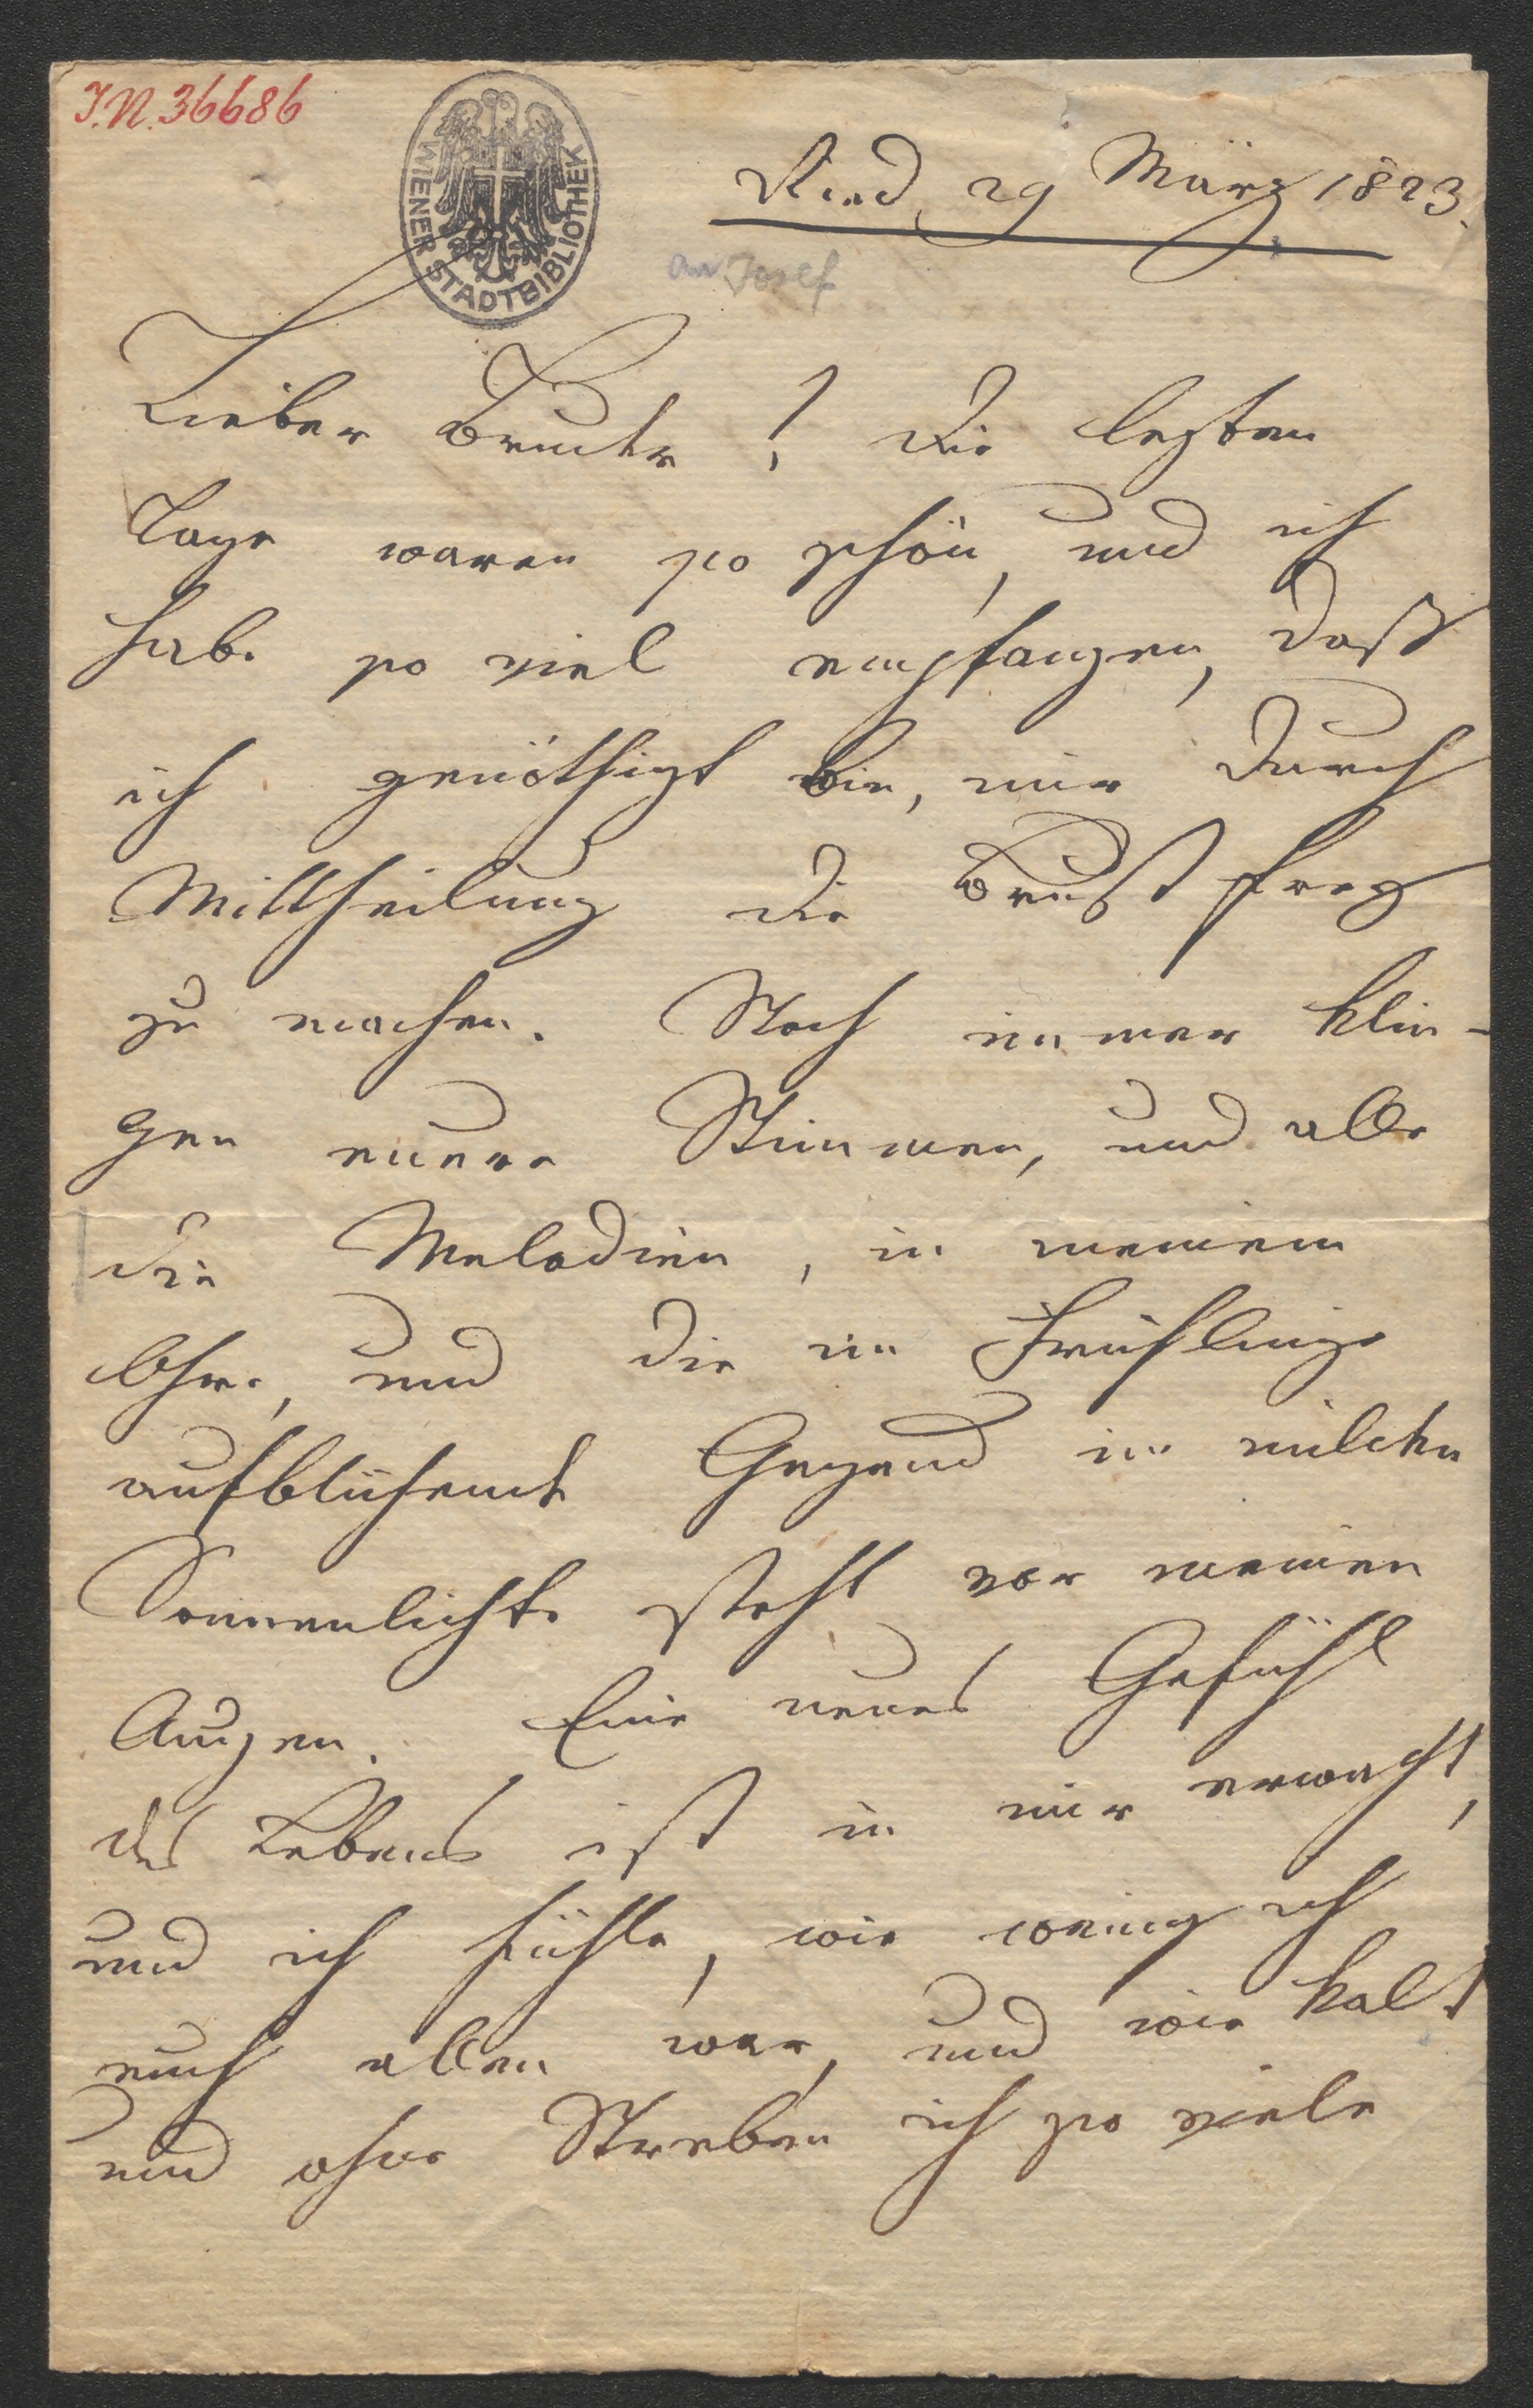 I.N. 36686
WIENER STADTBIBLIOTHEK
Ried, 29 März 1823.
an Josef
Lieber Bruder! Die lezten
Tage waren so schön, und ich
habe so viel empfangen, daß
ich genöthigt bin, mir durch
Mittheilung die Brust frey
zu machen. Noch immer klin-
gen eure Stimmen, und alle
die Melodien, in meinem
Ohre, und die im Frühlinge
aufblühende Gegend im milden
Sonnenlichte steht vor meinen
Augen. Eine neues Gefühl
des Lebens ist in mir erwacht,
und ich fühle, wie wenig ich
euch allen war, und wie kalt
und ohne Streben ich so viele